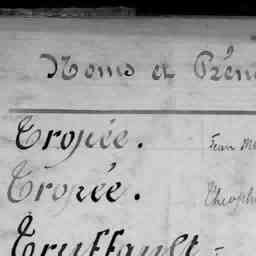 Noms et Prén
Tropée. Jean M
Tropée. Théoph
Truffault -